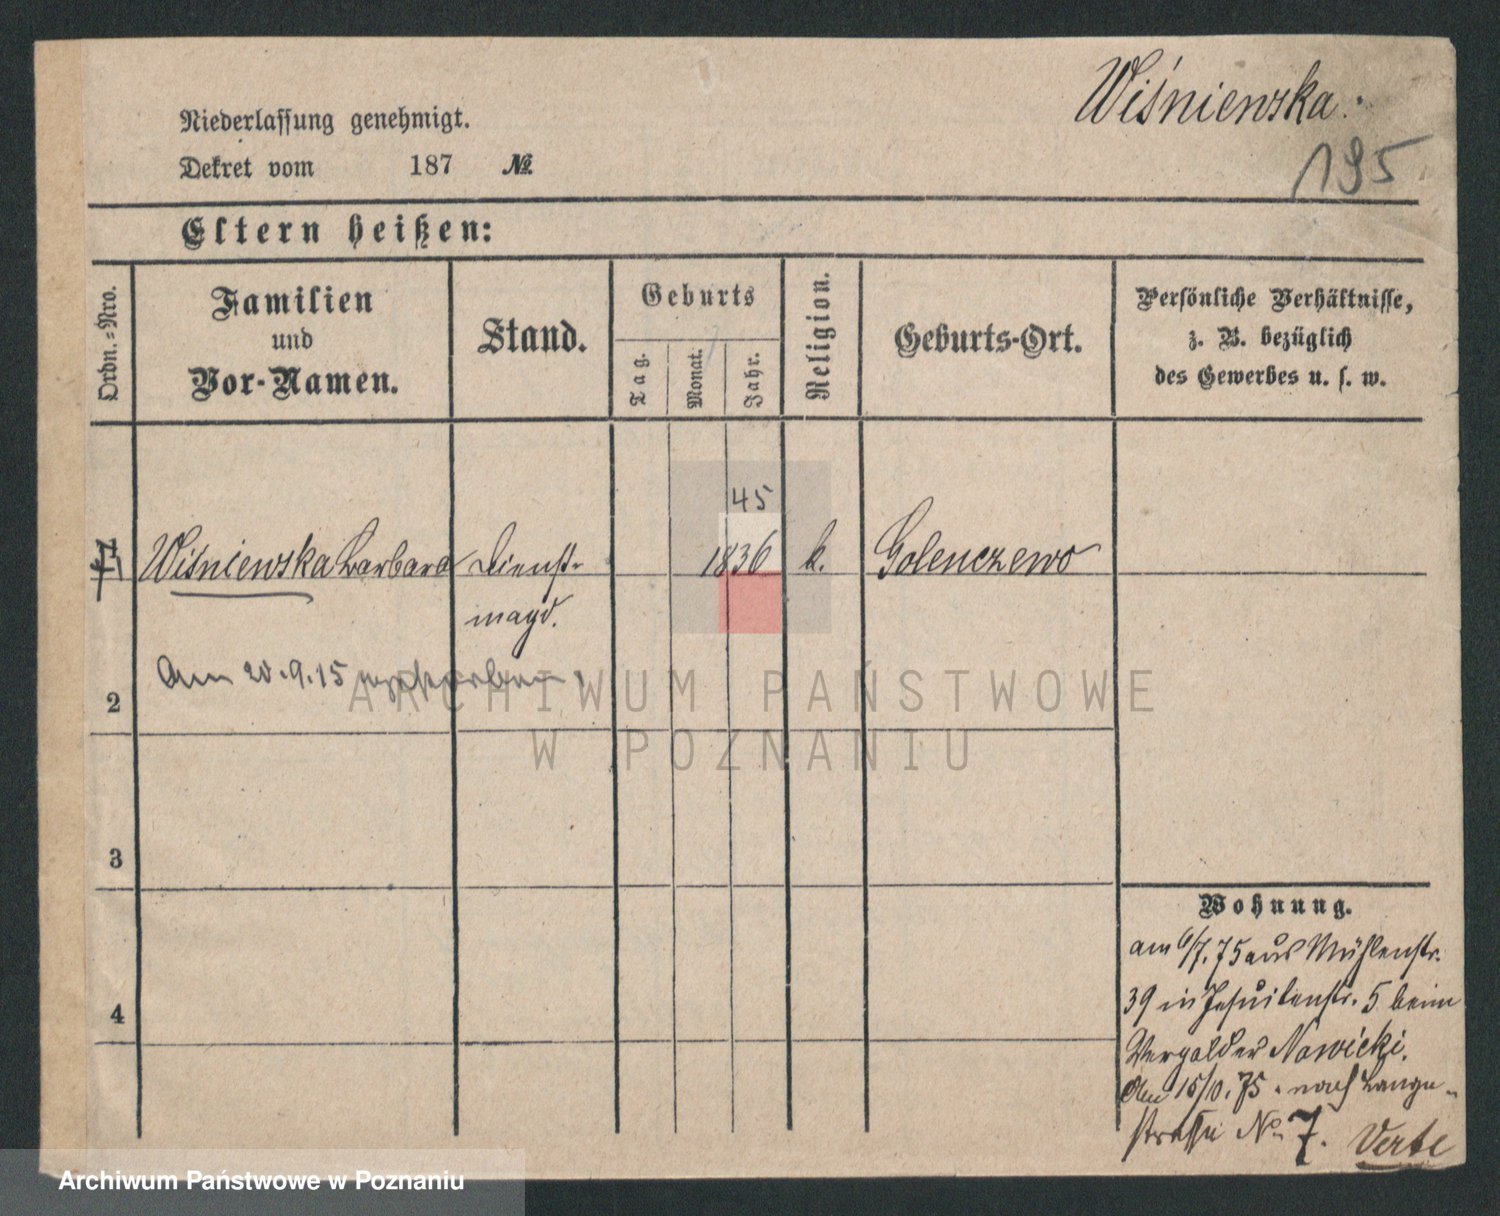 Wiśniewska.
195
Niederlassung genehmigt.
Dekret vom 187 №
Eltern heißen:
Ordn.-Nro.
Familien
und
Vor-Namen.
Stand.
Geburts
Tag.
Monat.
Jahr.
Religion.
Geburts-Ort.
Persönliche Verhältnisse,
z. B. bezüglich
des Gewerbes u. s. w.
45
1 Wiśniewska Barbara Dienst- 1836 k. Golenczewo
magd.
Am 20.9.15 verstorben.
2
ARCHIWUM PAŃSTWOWE
W POZNANIU
3
4
Wohnung.
am 6/7.75 aus Mühlenstr.
39 in Jesuitenstr. 5 beim
Vergolder Nowicki.
Am 15/10.75. nach Lange-
strasse No 7. Verte
Archiwum Państwowe w Poznaniu